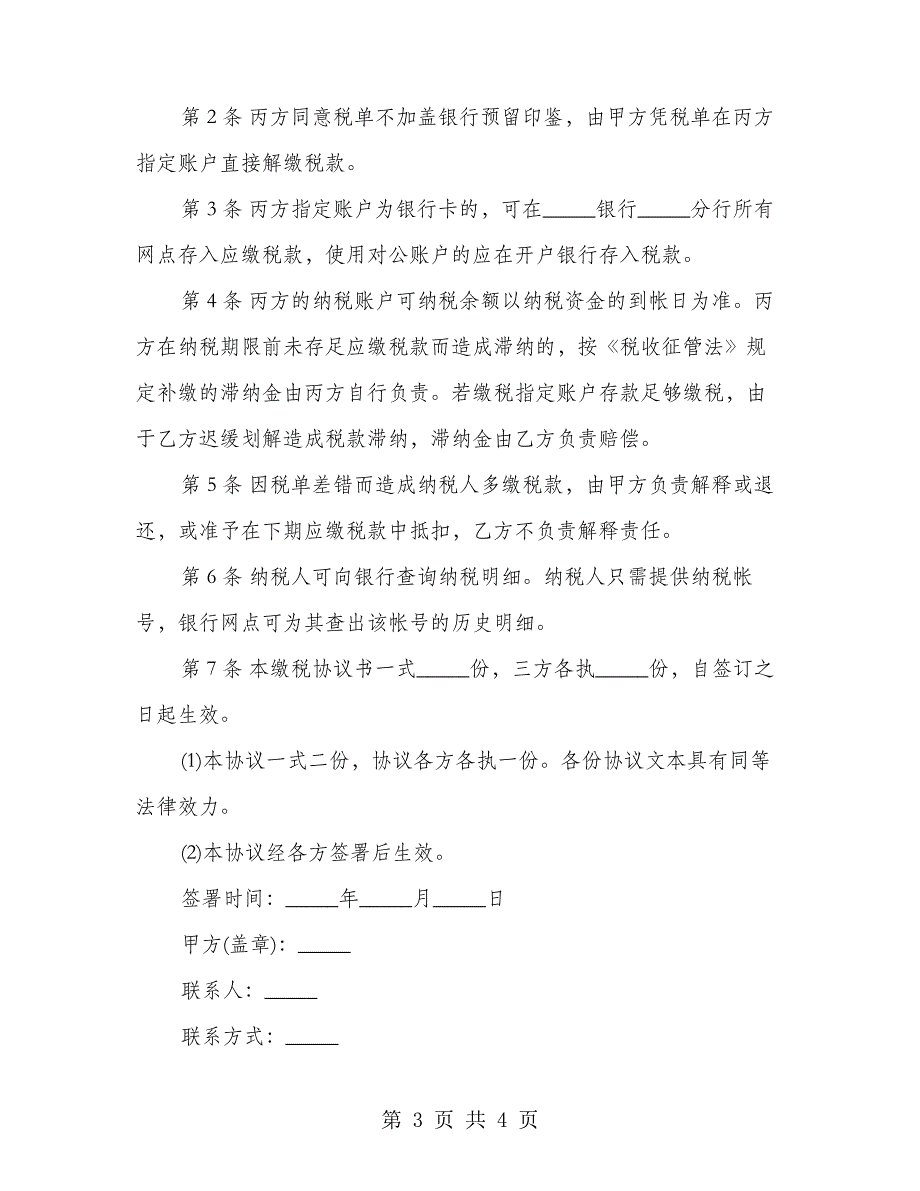 第 2 条 丙方同意税单不加盖银行预留印鉴，由甲方凭税单在丙方
指定账户直接解缴税款。
第 3 条 丙方指定账户为银行卡的，可在_____银行_____分行所有
网点存入应缴税款，使用对公账户的应在开户银行存入税款。
第 4 条 丙方的纳税账户可纳税余额以纳税资金的到帐日为准。丙
方在纳税期限前未存足应缴税款而造成滞纳的，按《税收征管法》规
定补缴的滞纳金由丙方自行负责。若缴税指定账户存款足够缴税，由
于乙方迟缓划解造成税款滞纳，滞纳金由乙方负责赔偿。
第 5 条 因税单差错而造成纳税人多缴税款，由甲方负责解释或退
还，或准予在下期应缴税款中抵扣，乙方不负责解释责任。
第 6 条 纳税人可向银行查询纳税明细。纳税人只需提供纳税帐
号，银行网点可为其查出该帐号的历史明细。
第 7 条 本缴税协议书一式_____份，三方各执_____份，自签订之
日起生效。
⑴本协议一式二份，协议各方各执一份。各份协议文本具有同等
法律效力。
⑵本协议经各方签署后生效。
签署时间：_____年_____月_____日
甲方(盖章)：_____
联系人：_____
联系方式：_____
第 3 页 共 4 页